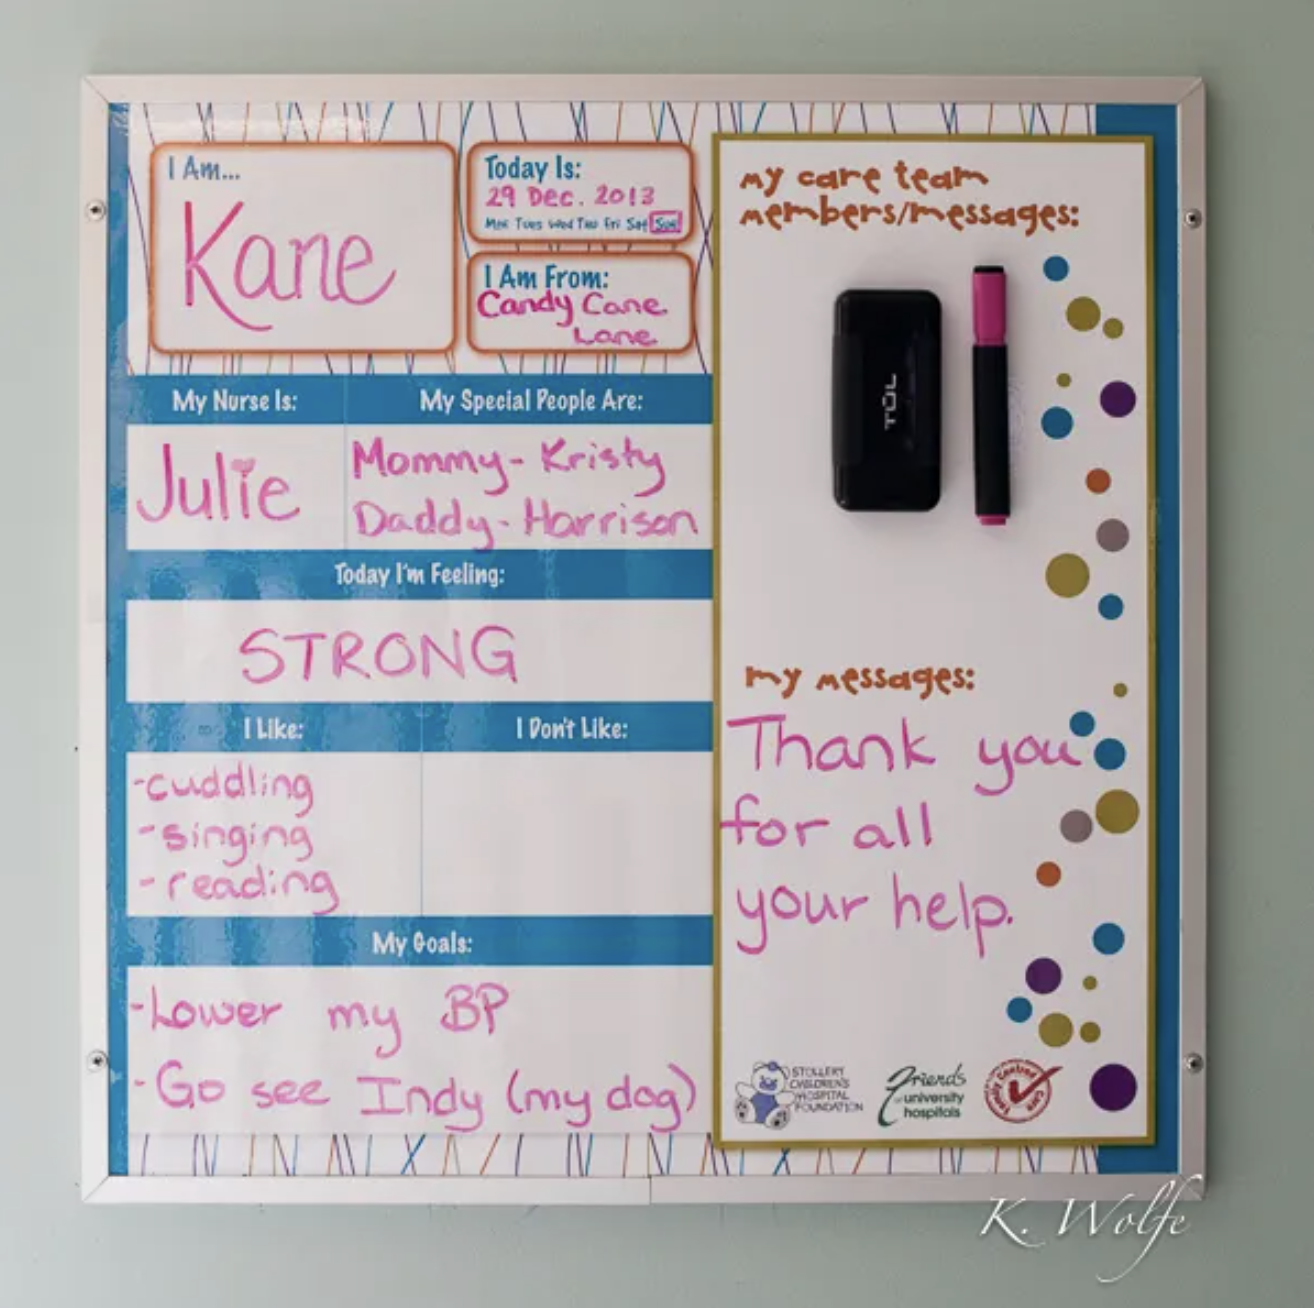 I Am...
Kane
Today Is:
29 Dec. 2013
Mon Tues Wed Thu Fri Sat Sun
I Am From:
Candy Cane
Lane
My Nurse Is:
Julie
My Special People Are:
Mommy- Kristy
Daddy- Harrison
Today I'm Feeling:
STRONG
I Like:
-cuddling
-singing
-reading
I Don't Like:
My Goals:
-Lower my BP
-Go see Indy (my dog)
my care team
members/messages:
TŪL
my messages:
Thank you
for all
your help.
STOLLERY
CHILDREN'S
HOSPITAL
FOUNDATION
Friends
of university
hospitals
Family Centred Care
K. Wolfe